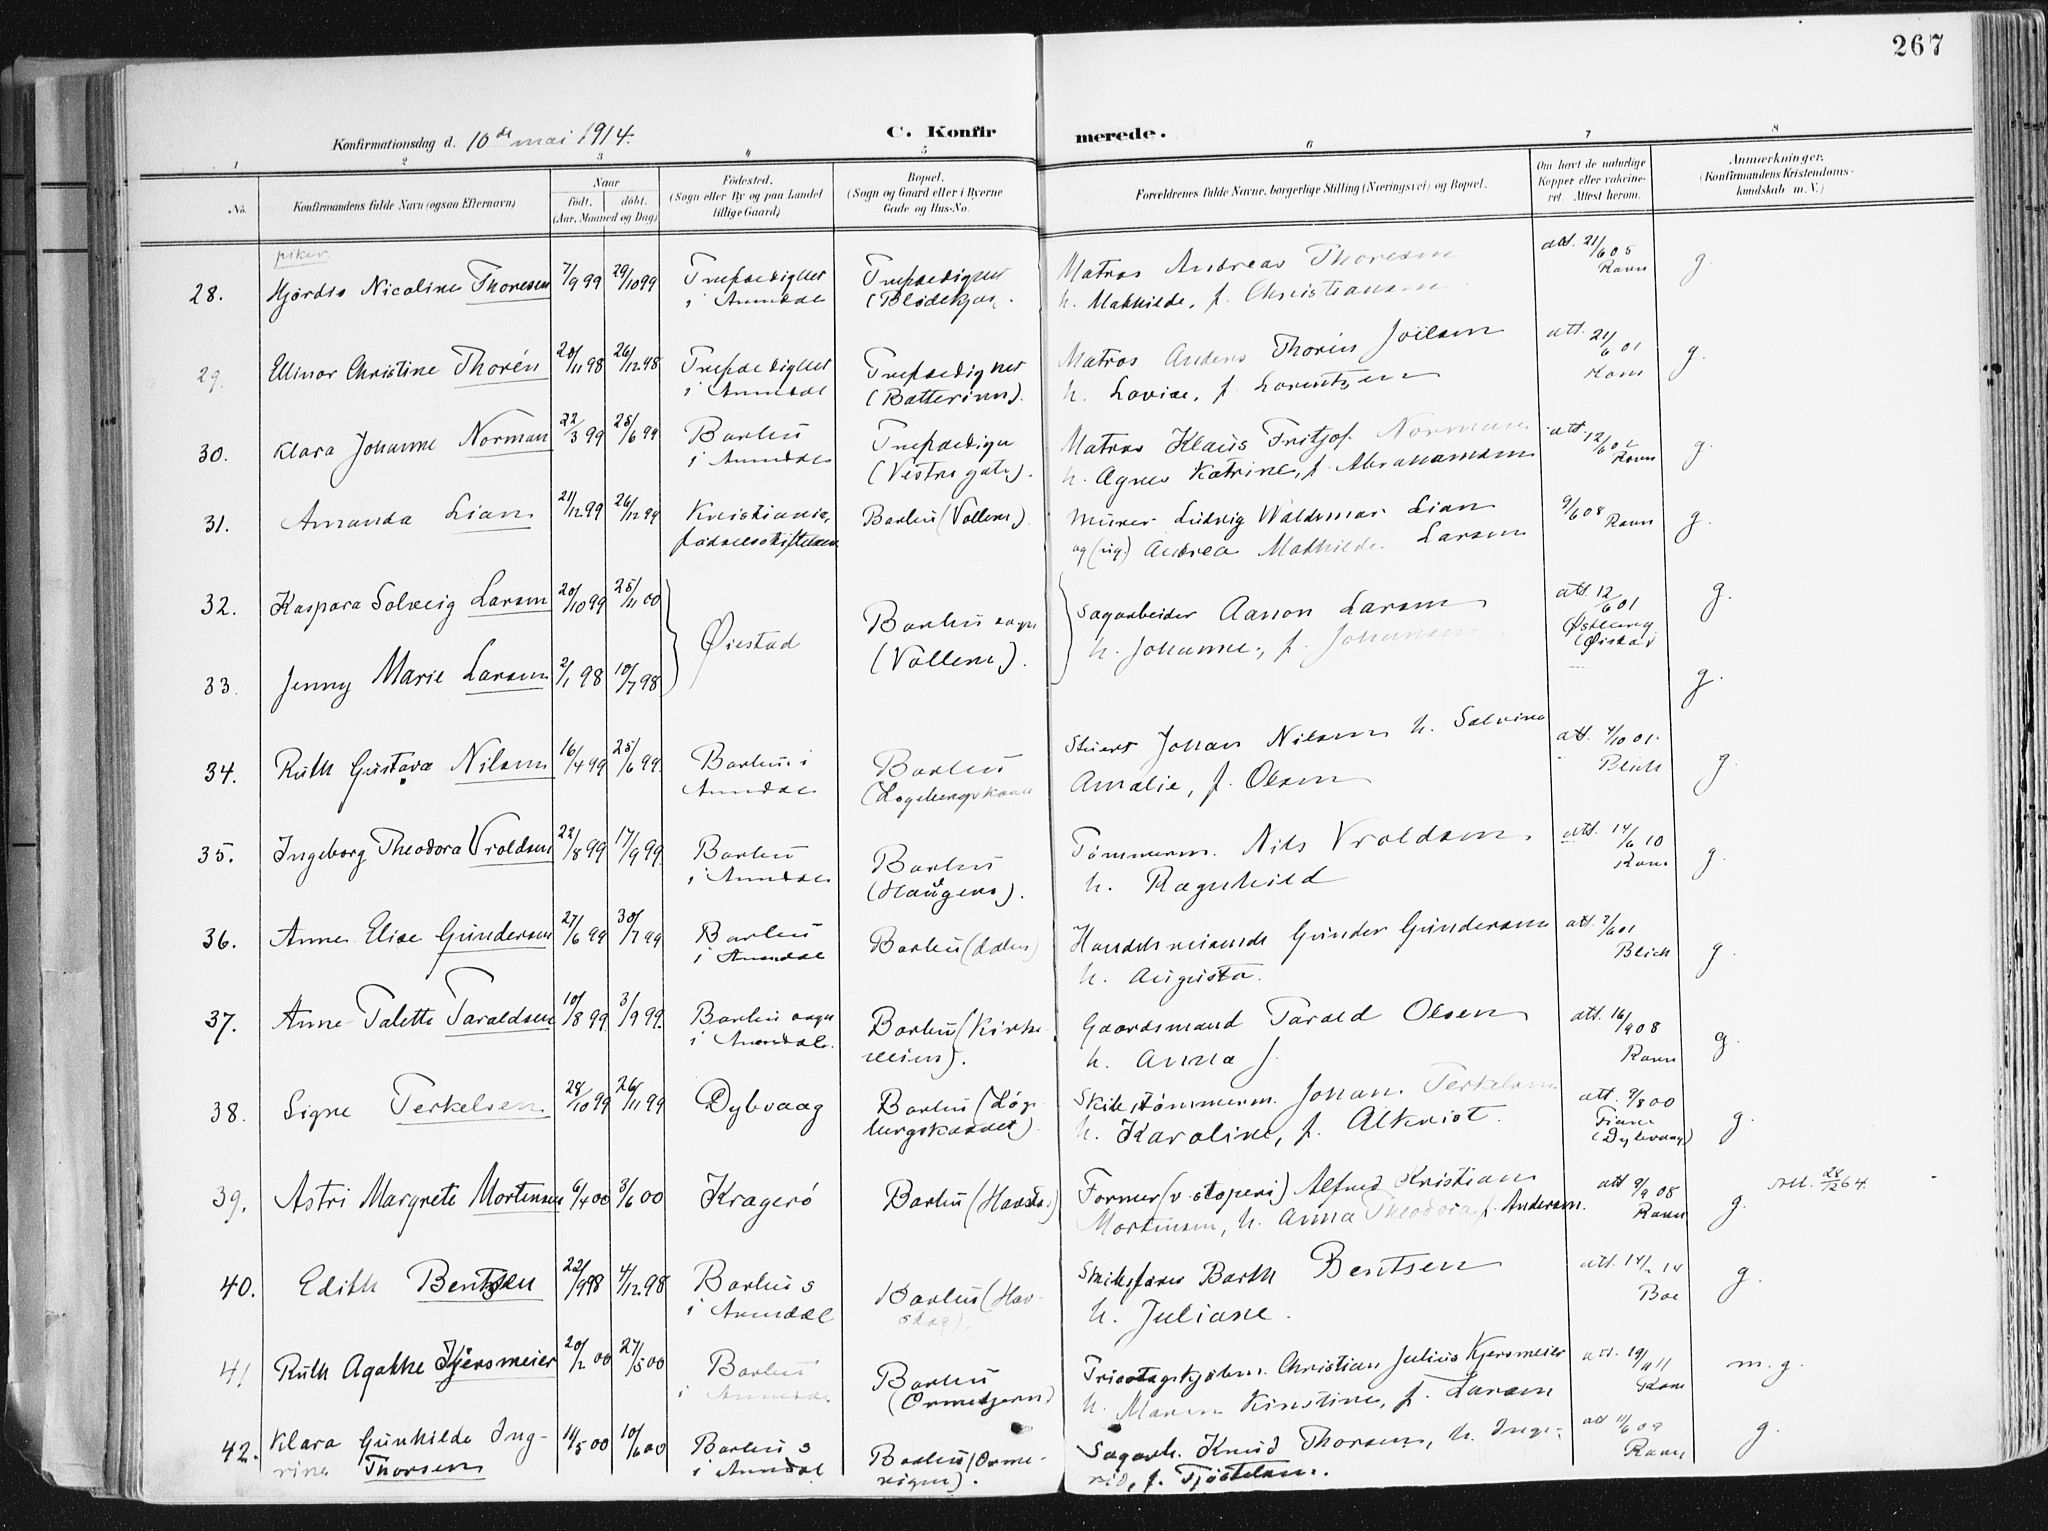 267
Konfirmationsdag d. 10de mai 1914.
C. Konfirmerede.
1 2 3 4 5 6 7 8
No.
Konfirmandens fulde Navn (ogsaa Efternavn)
Naar
født. døbt.
(Aar, Maaned og Dag)
Fødested.
(Sogn eller By og paa Landet
tillige Gaard)
Bopæl.
(Sogn og Gaard eller i Byerne
Gade og Hus-No.
Forældrenes fulde Navne, borgerlige Stilling (Næringsvei) og Bopæl.
Om havt de naturlige
Kopper eller vaccine-
ret. Attest herom.
Anmærkninger.
(Konfirmandens Kristendoms-
kundskab m. V.)
piker
28. Hjørdis Nicoline Thoresen 7/9 99 29/10 99 Trefoldighet i Arendal Trefoldighet (Blødekjær. Matros Andreas Thoresen
h. Mathilde, f. Christiansen att. 21/6 05 Ravn g.
29. Ellinor Christine Thorén 20/11 98 26/12 98 Trefoldighet i Arendal Trefoldighet (Batteriet). Matros Anders Thorén Joëlsen
h. Lovise, f. Lorentzen att. 21/6 01 Ravn g.
30. Klara Johanne Norman 22/3 99 25/6 99 Barbu i Arendal (Vestregate). Matros Klaus Fritjof Norman
h. Agnes Katrine, f. Abrahamsen att. 12/6 02 Ravn g.
31. Amanda Lian 21/12 99 26/12 99 Kristiania, fødselsstiftelsen Barbu (Vollene). Murer Ludvig Waldemar Lian
og (ug.) Andrea Mathilde Larsen 9/6 08 Ravn g.
32. Kaspara Solveig Larsen 20/10 99 25/11 00 Øiestad Barbu sogn (Vollene). Sagarbeider Aanon Larsen
h. Johanne, f. Johansen att. 12/6 01 Østberg (Øiestad g.
33. Jenny Marie Larsen 2/1 98 10/7 98 g.
34. Ruth Gustava Nilsen 16/4 99 25/6 99. Barbu i Arendal Barbu (Løgebergskaaret Stuert Johan Nilsen h. Salvine
Amalie, f. Olsen att. 4/10 01. Blich g.
35. Ingeborg Theodora Vroldsen 22/8 99 17/9 99. Barbu i Arendal Barbu (Haugene). Tømmerm. Nils Vroldsen
h. Ragnhild att. 14/6 10 Ravn g.
36. Anne Elise Gundersen 27/6 99 30/7 99 Barbu i Arendal Barbu Handelsreisende Gunder Gundersen
h. Augusta. att. 7/6 01 Blich g.
37. Anne Talette Taraldsen 10/8 99 3/9 99. Barbu sogn i Arendal. Barbu (Kirkeveien). Gaardsmand Tarald Olsen
h. Anna J. att. 16/9 08 Ravn g.
38. Signe Terkelsen 28/10 99 26/11 99 Dybvaag Barbu (Løgebergskaaret). Skibstømmerm. Johan Terkelsen
h. Karoline, f. Alkvist. att. 9/8 00 Fiane (Dybvaag) g.
39. Astri Margrete Mortensen 6/4 00 3/6 00 Kragerø Barbu Former (v. støperi) Alfred Kristian
Mortensen, h. Anna Theodora f. Andersen. att 9/9 08 Ravn g. Att. 28/12 64.
40. Edith Bentsen 22/9 98 4/12 98 Barbu s i Arendal Barbu (Havstad). Skibsfører Barth Bentsen
h. Juliane. att. 14/2 14 Boe g.
41 Ruth Agathe Kjersmeier 20/2 00 27/5 00 Barbu i Arendal Barbu (Ormetjern) Tricotagehjolem. Christian Julius Kjersmeier
h. Maren Kirstine, f. Larsen att. 19/9 11 Ravn m. g.
42. Klara Gunhilde Ing-
rine Thorsen 14/5 00 10/6 00 Barbu s i Arendal Barbu (Ormevigen). Sagarb. Knud Thorsen, h. Inge-
rid, f. Tjøstelsen. att 11/6 09 Ravn g.